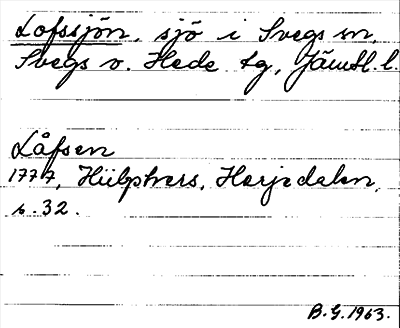 Lofssjön, sjö i Svegs sn,
Svegs o. Hede tg, Jämtl. l.
Låfsen
1777, Hülphers, Herjedalen,
s. 32.
B.G. 1963.